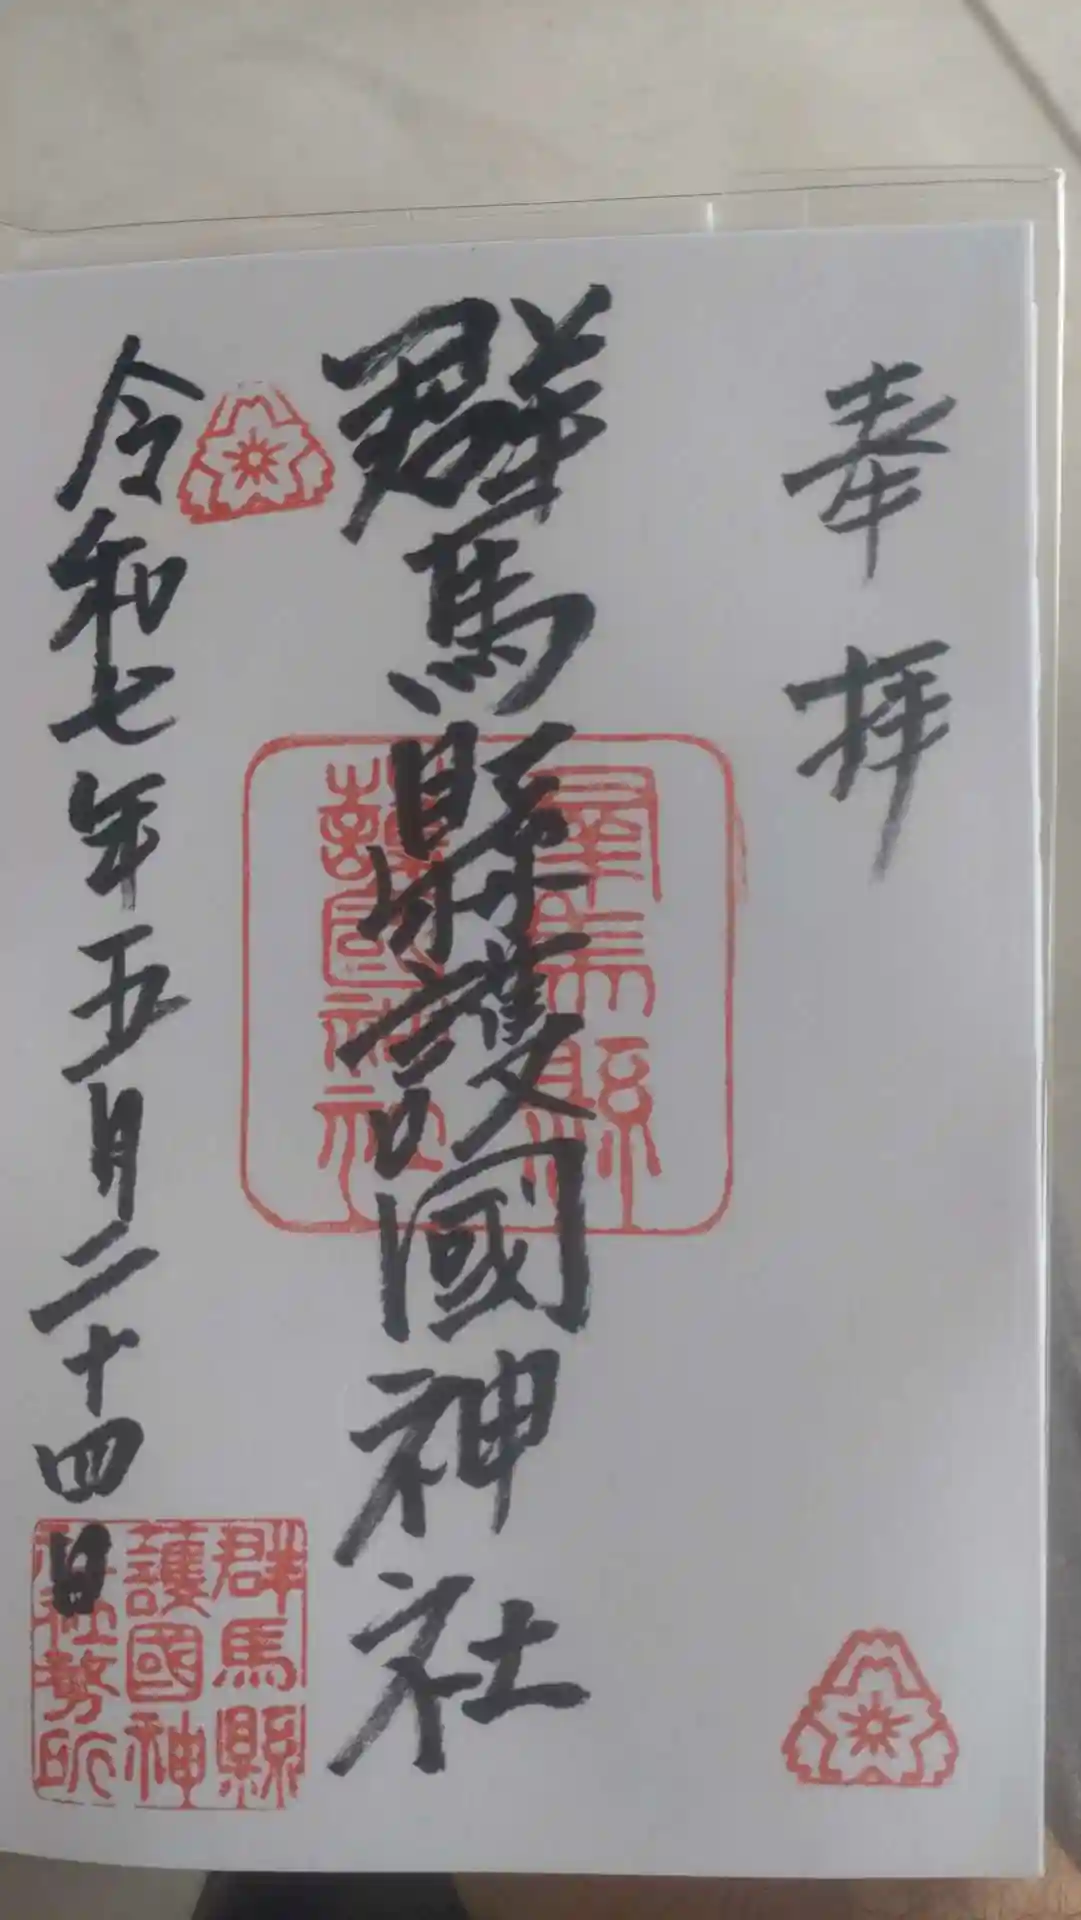 奉拝
群馬縣護國神社
群馬縣
護國神社
令和七年五月二十四日
群馬縣
護國神
社社務所